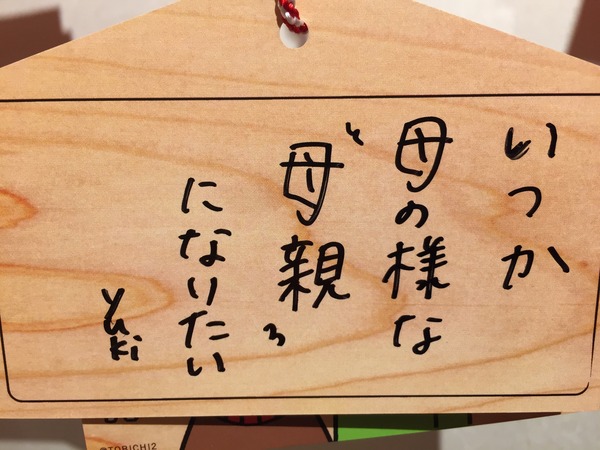 いつか
母の様な
母親
になりたい
yuki
@TORICHI2